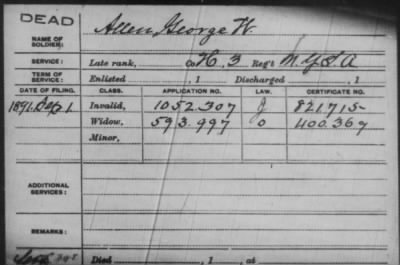 DEAD
NAME OF SOLDIER: Allen, George W.
SERVICE: Late rank, Co. H, 3 Reg't N.Y.S.A
TERM OF SERVICE: Enlisted , 1 Discharged , 1
DATE OF FILING. CLASS. APPLICATION NO. LAW. CERTIFICATE NO.
1891 Sep 1 Invalid, 1052.307 J 821.715
Widow, 593.997 O 400.369
Minor,
ADDITIONAL SERVICES:
REMARKS:
Died , 1 , at